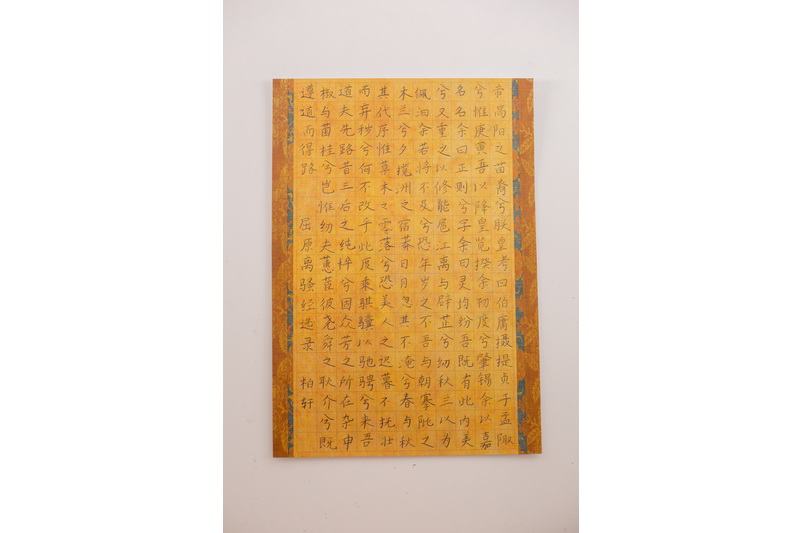 帝高阳之苗裔兮朕皇考曰伯庸摄提贞于孟陬
兮惟庚寅吾以降皇览揆余初度兮肇锡余以嘉
名名余曰正则兮字余曰灵均纷吾既有此内美
兮又重之以修能扈江离与辟芷兮纫秋兰以为
佩汩余若将不及兮恐年岁之不吾与朝搴阰之
木兰兮夕揽洲之宿莽日月忽其不淹兮春与秋
其代序惟草木之零落兮恐美人之迟暮不抚壮
而弃秽兮何不改乎此度乘骐骥以驰骋兮来吾
道夫先路昔三后之纯粹兮因众芳之所在杂申
椒与菌桂兮岂惟纫夫蕙茝彼尧舜之耿介兮既
遵道而得路 屈原离骚经选录 柏轩